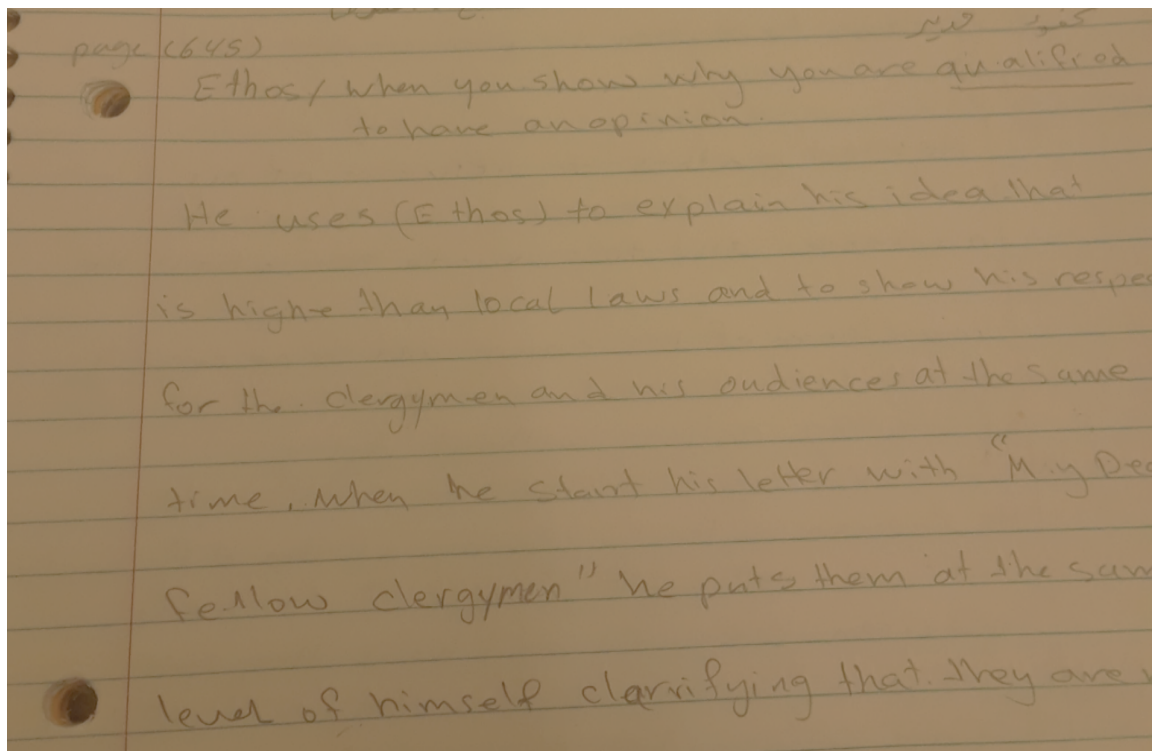 page (645)
Ethos/ when you show why you are qualifiod
to have an opinion.
He uses (Ethos) to explain his idea that
is highe than local laws and to show his respe
for the clergymen and his oudiences at the same
time, when he start his letter with "My Dea
fellow clergymen" he puts them at the sam
level of himself clarrifying that they are